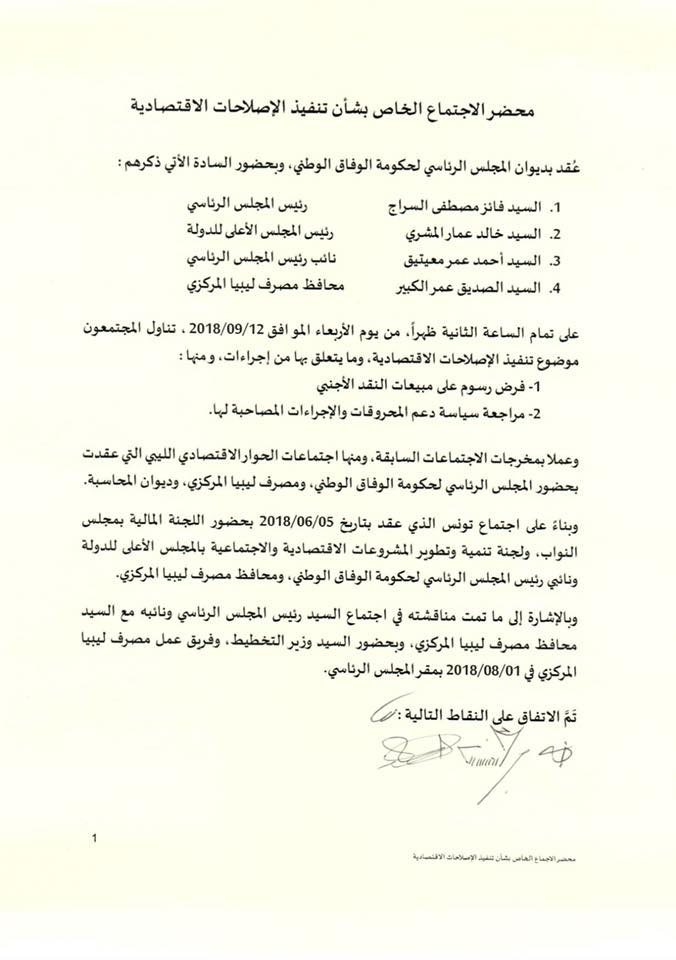 محضر الاجتماع الخاص بشأن تنفيذ الإصلاحات الاقتصادية
عُقد بديوان المجلس الرئاسي لحكومة الوفاق الوطني، وبحضور السادة الأتي ذكرهم :
1. السيد فائز مصطفى السراج رئيس المجلس الرئاسي
2. السيد خالد عمار المشري رئيس المجلس الأعلى للدولة
3. السيد أحمد عمر معيتيق نائب رئيس المجلس الرئاسي
4. السيد الصديق عمر الكبير محافظ مصرف ليبيا المركزي
على تمام الساعة الثانية ظهراً، من يوم الأربعاء الموافق 2018/09/12 ، تناول المجتمعون
موضوع تنفيذ الإصلاحات الاقتصادية، وما يتعلق بها من إجراءات، ومنها :
1- فرض رسوم على مبيعات النقد الأجنبي
2- مراجعة سياسة دعم المحروقات والإجراءات المصاحبة لها.
وعملا بمخرجات الاجتماعات السابقة، ومنها اجتماعات الحوار الاقتصادي الليبي التي عقدت
بحضور المجلس الرئاسي لحكومة الوفاق الوطني، ومصرف ليبيا المركزي، وديوان المحاسبة.
وبناءً على اجتماع تونس الذي عقد بتاريخ 2018/06/05 بحضور اللجنة المالية بمجلس
النواب، ولجنة تنمية وتطوير المشروعات الاقتصادية والاجتماعية بالمجلس الأعلى للدولة
ونائبي رئيس المجلس الرئاسي لحكومة الوفاق الوطني، ومحافظ مصرف ليبيا المركزي.
وبالإشارة إلى ما تمت مناقشته في اجتماع السيد رئيس المجلس الرئاسي ونائبه مع السيد
محافظ مصرف ليبيا المركزي، وبحضور السيد وزير التخطيط، وفريق عمل مصرف ليبيا
المركزي في 2018/08/01 بمقر المجلس الرئاسي.
تَمَّ الاتفاق على النقاط التالية :
1
محضر الاجماع الخاص بشأن تنفيذ الإصلاحات الاقتصادية